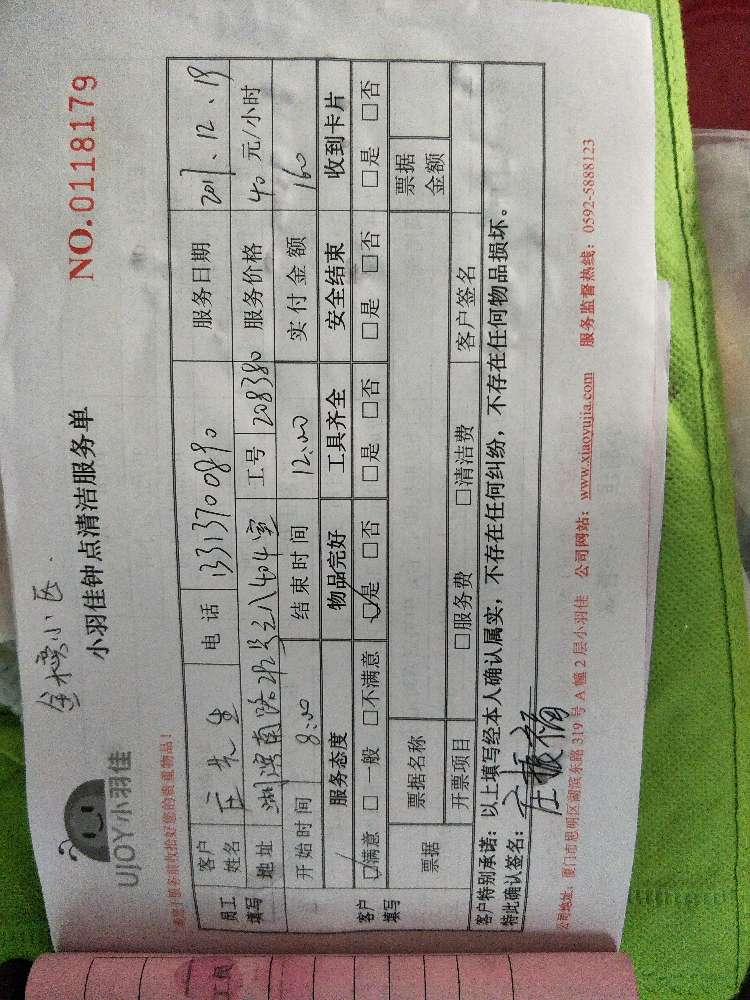 金榜小区.
UJOY小羽佳
小羽佳钟点清洁服务单
NO.0118179
员工填写 客户姓名 庄先生 电话 13313700890 服务日期 2017.12.19
地址 湖滨南路 404室 工号 208380 服务价格 40元/小时
开始时间 8:00 结束时间 12:00 实付金额 160
客户填写 服务态度 物品完好 工具齐全 安全结束 收到卡片
☑满意 □一般 □不满意 ☑是 □否 □是 □否 □是 □否 □是 □否
票据 票据名称 票据金额
开票项目 □服务费 □清洁费 客户签名
客户特别承诺：以上填写经本人确认属实，不存在任何纠纷，不存在任何物品损坏。
特此确认签名：
公司地址：厦门市思明区湖滨东路319号A幢2层小羽佳 公司网站：www.xiaoyujia.com 服务监督热线：0592-5888123